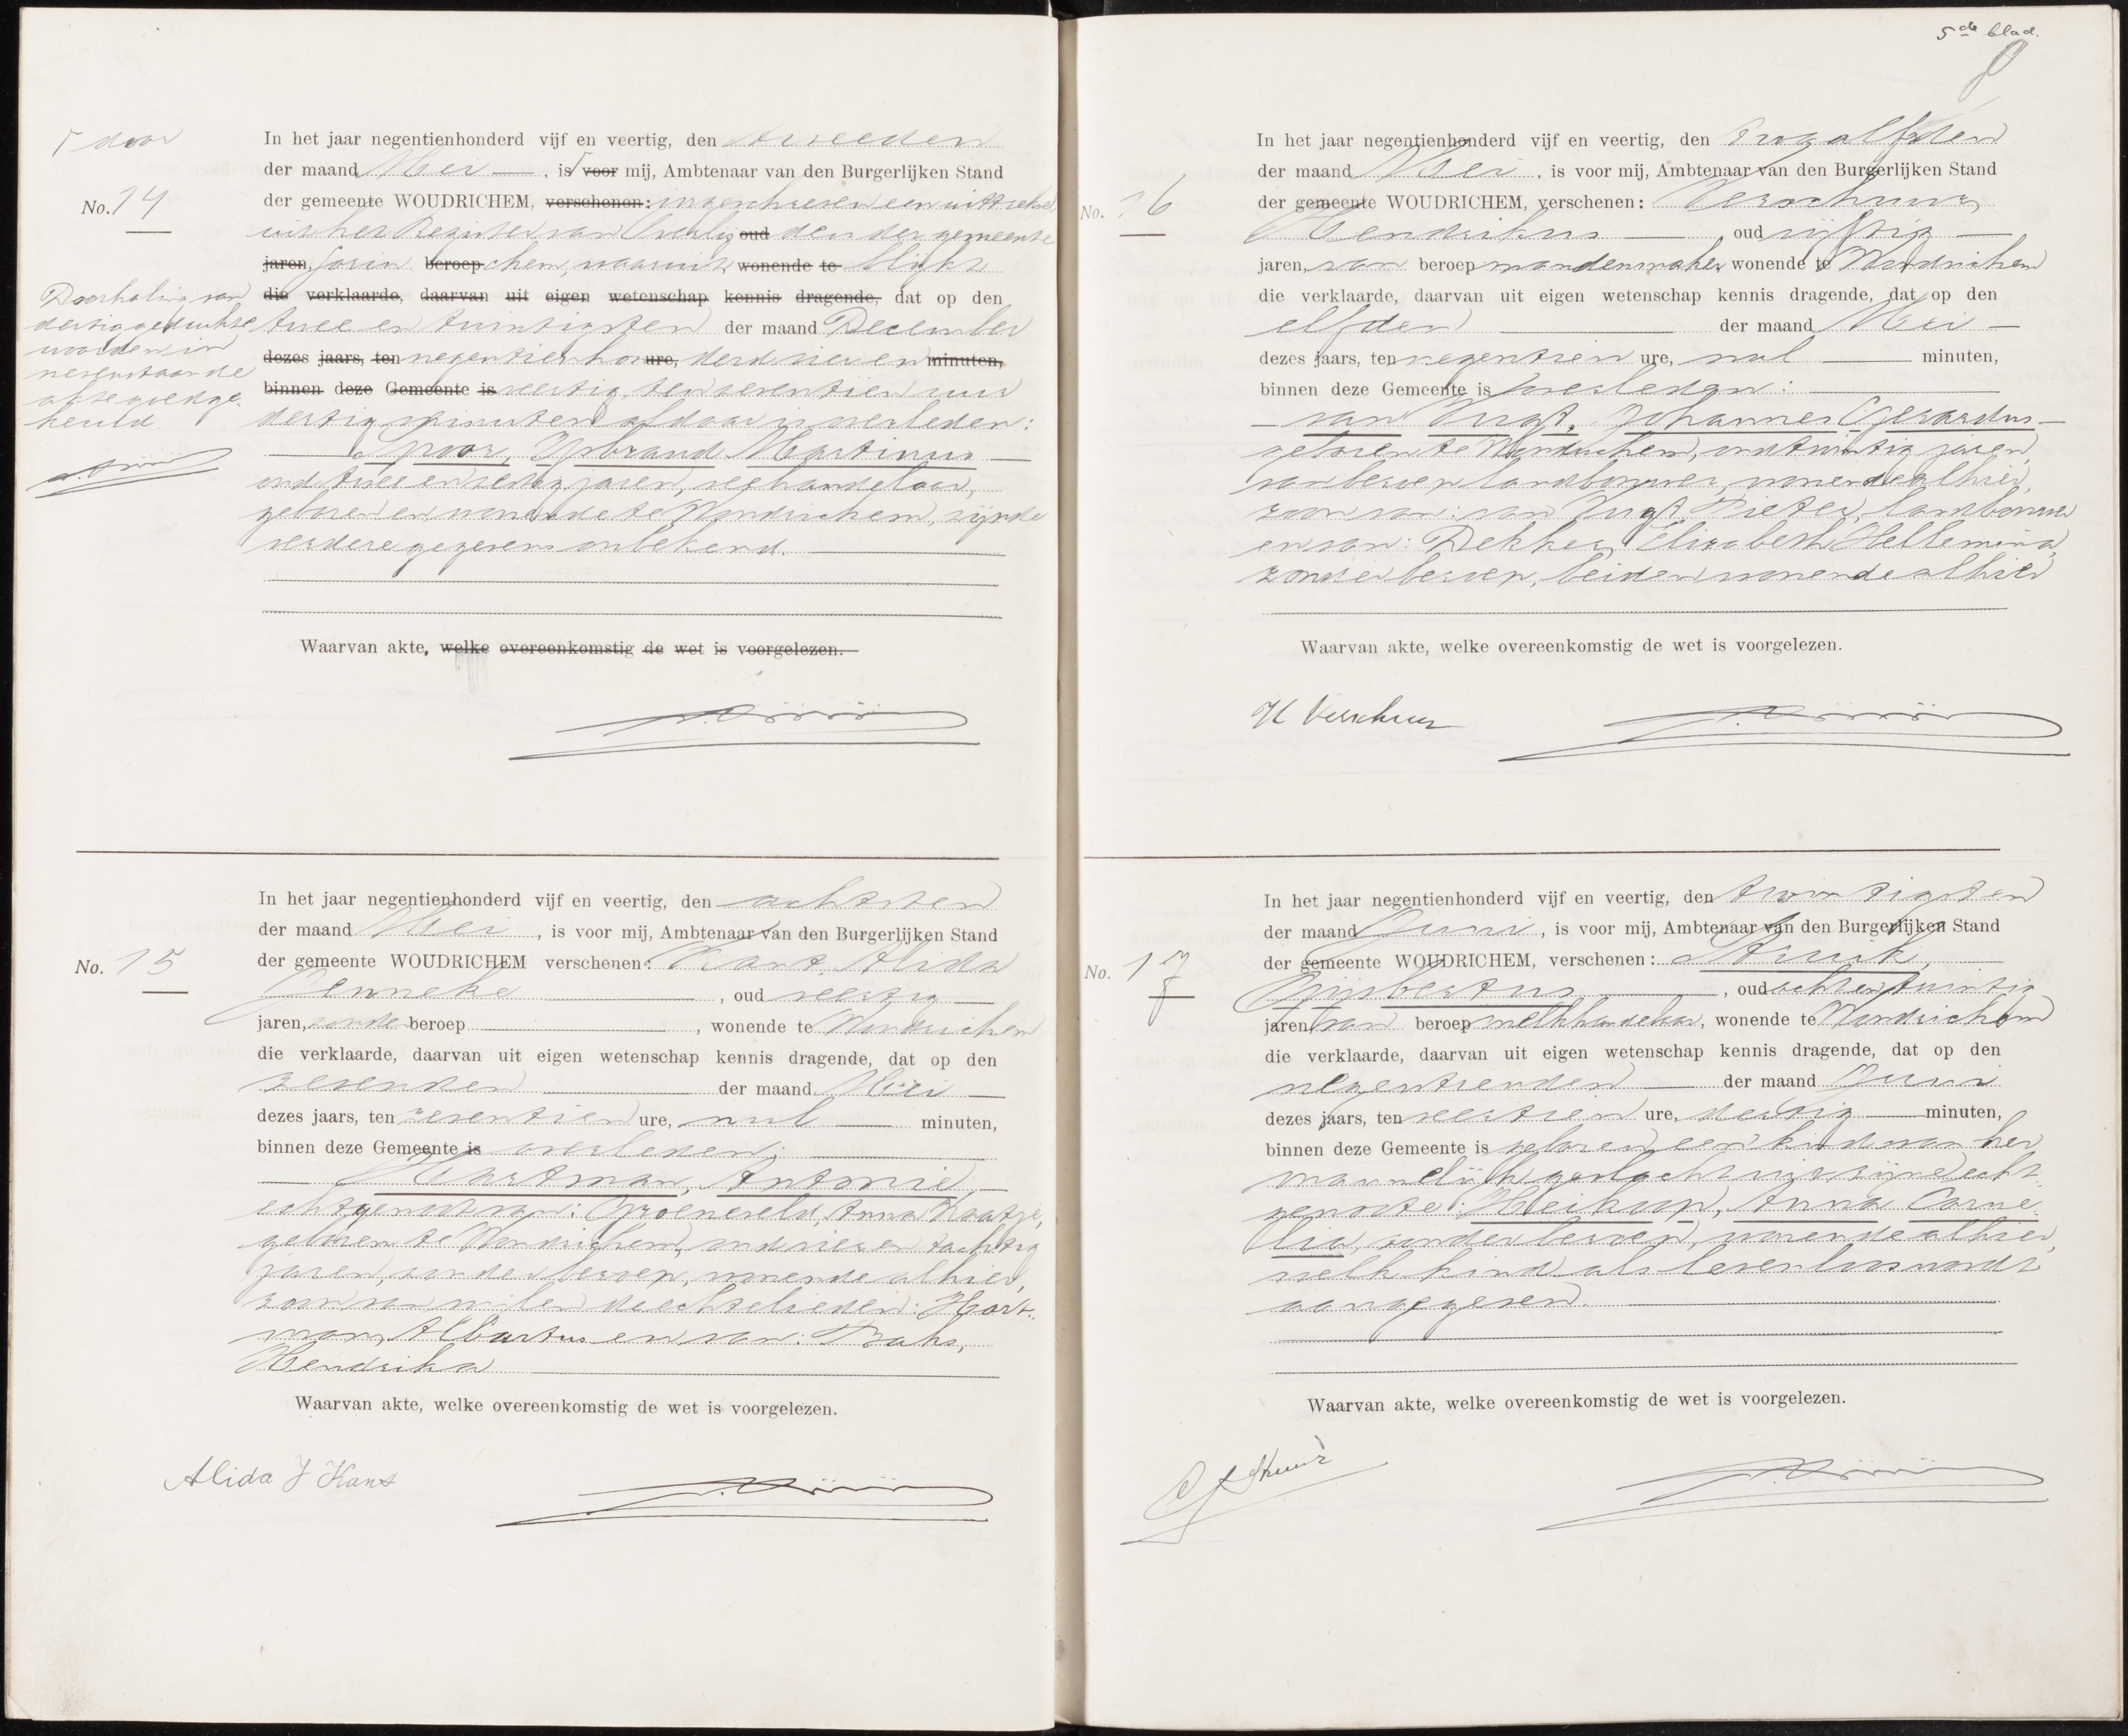 5de blad.
door
In het jaar negentienhonderd vijf en veertig, den tweeden
der maand Mei, is voor mij, Ambtenaar van den Burgerlijken Stand
No. 14
der gemeente WOUDRICHEM, verschenen: ingeschreven een uittreksel
uit het Register van Overlij oud den der gemeente
jaren, Gorin beroep chem, waaruit wonende te blijkt
die verklaarde, daarvan uit eigen wetenschap kennis dragende, dat op den
twee en twintigsten der maand December
dezes jaars, ten negentienhon ure, derd vier en minuten,
binnen deze Gemeente is veertig, ten zeventien uur
dertig minuten aldaar is overleden:
Spoor, IJsbrand Martinus
oud twee en zestig jaren, veehandelaar,
geboren en wonende te Woudrichem, zijnde
verdere gegevens onbekend.
Doorhaling van
dertig gedrukte
woorden in
nevenstaande
akte goedge-
keurd
Waarvan akte, welke overeenkomstig de wet is voorgelezen.
In het jaar negentienhonderd vijf en veertig, den achtsten
der maand Mei, is voor mij, Ambtenaar van den Burgerlijken Stand
No. 15
der gemeente WOUDRICHEM verschenen: Kant, Alida
Jenneke, oud veertig
jaren, zonder beroep, wonende te Woudrichem
die verklaarde, daarvan uit eigen wetenschap kennis dragende, dat op den
zevenden der maand Mei
dezes jaars, ten zeventien ure, nul minuten,
binnen deze Gemeente is overleden:
Hartman, Antonie,
echtgenoot van: Groeneveld, Anna Kaatje,
geboren te Woudrichem, oud vier en tachtig
jaren, zonder beroep, wonende alhier,
zoon van wijlen de echtelieden: Hart-
man, Albartus en van: Baks,
Hendrika
Waarvan akte, welke overeenkomstig de wet is voorgelezen.
Alida J Kant
In het jaar negentienhonderd vijf en veertig, den twaalfden
der maand Mei, is voor mij, Ambtenaar van den Burgerlijken Stand
No. 16
der gemeente WOUDRICHEM, verschenen: Verschuur,
Hendrikus, oud vijftig
jaren, van beroep mandenmaker wonende te Woudrichem
die verklaarde, daarvan uit eigen wetenschap kennis dragende, dat op den
elfden der maand Mei
dezes jaars, ten negentien ure, nul minuten,
binnen deze Gemeente is overleden:
van Vugt, Johannes Gerardus
geboren te Woudrichem, oud twintig jaren,
van beroep landbouwer, wonende alhier,
zoon van: van Vugt, Pieter, landbouwer
en van: Dekker, Elizabeth Hellemina,
zonder beroep, beiden wonende alhier
Waarvan akte, welke overeenkomstig de wet is voorgelezen.
H Verschuur
In het jaar negentienhonderd vijf en veertig, den twintigsten
der maand Juni, is voor mij, Ambtenaar van den Burgerlijken Stand
No. 17
der gemeente WOUDRICHEM, verschenen: Struik,
Gijsbertus, oud acht en twintig
jaren, van beroep melkhandelaar, wonende te Woudrichem
die verklaarde, daarvan uit eigen wetenschap kennis dragende, dat op den
negentienden der maand Juni
dezes jaars, ten veertien ure, dertig minuten,
binnen deze Gemeente is geboren een kind van het
mannelijk geslacht uit zijne echt-
genoote: Heikoop, Anna Corne-
lia, zonder beroep, wonende alhier,
welk kind als levenloos wordt
aangegeven.
Waarvan akte, welke overeenkomstig de wet is voorgelezen.